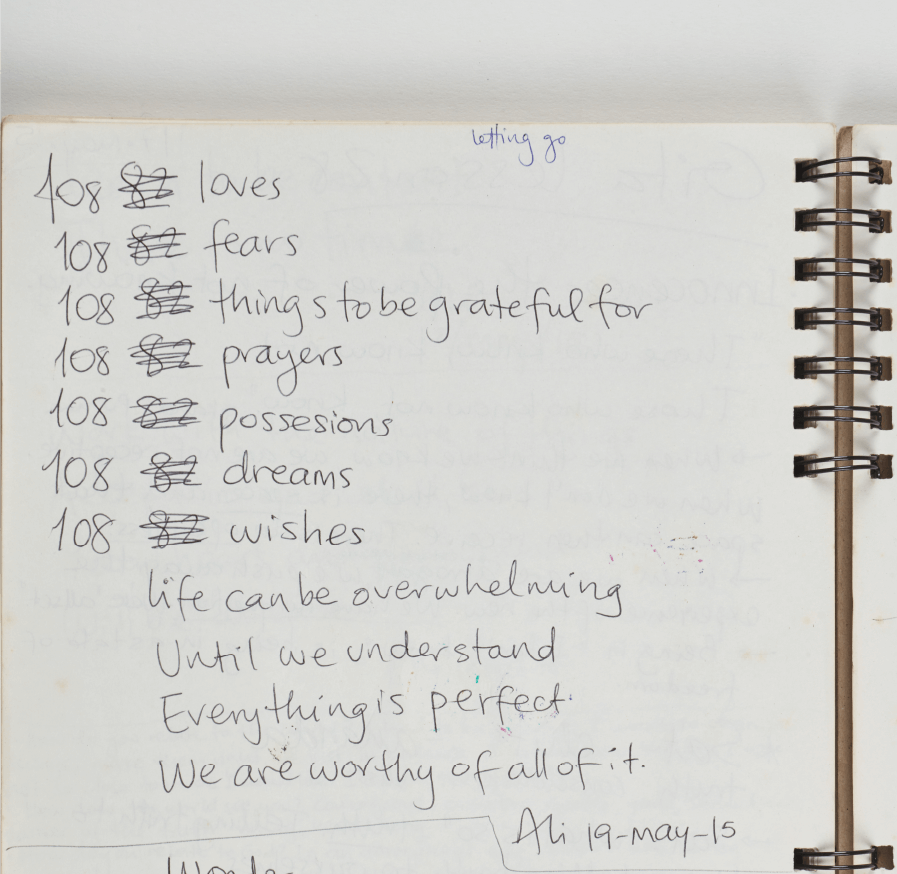 letting go
108 82 loves
108 82 fears
108 82 things to be grateful for
108 82 prayers
108 82 possesions
108 82 dreams
108 82 wishes
life can be overwhelming
Until we understand
Everything is perfect.
We are worthy of all of it.
Ali 19-may-15